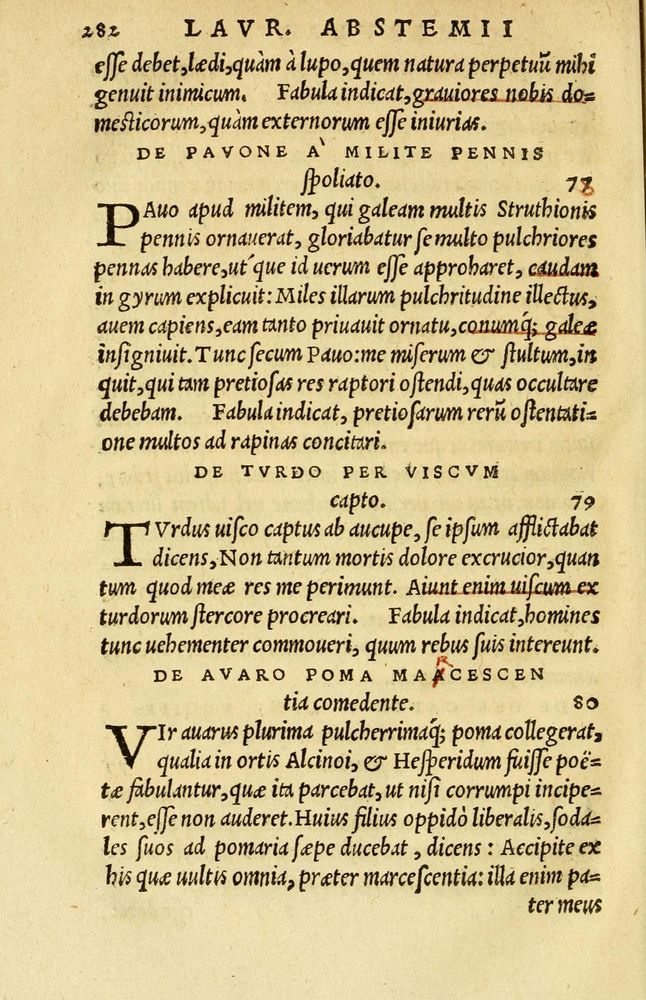 282 LAVR. ABSTEMII
esse debet, lædi, quàm à lupo, quem natura perpetuũ mihi
genuit inimicum. Fabula indicat, grauiores nobis do=
mesticorum, quàm externorum esse iniurias.
DE PAVONE A` MILITE PENNIS
spoliato. 78
PAuo apud militem, qui galeam multis Struthionis
pennis ornauerat, gloriabatur se multo pulchriores
pennas habere, ut´que id uerum esse approbaret, caudam
in gyrum explicuit: Miles illarum pulchritudine illectus,
auem capiens, eam tanto priuauit ornatu, conumq́; galeæ
insigniuit. Tunc secum Pauo: me miserum & stultum, in
quit, qui tam pretiosas res raptori ostendi, quas occultare
debebam. Fabula indicat, pretiosarum rerũ ostentati=
one multos ad rapinas concitari.
DE TVRDO PER VISCVM
capto. 79
TVrdus uisco captus ab aucupe, se ipsum afflictabat
dicens, Non tantum mortis dolore excrucior, quan
tum quod meæ res me perimunt. Aiunt enim uiscum ex
turdorum stercore procreari. Fabula indicat, homines
tunc uehementer commoueri, quum rebus suis intereunt.
DE AVARO POMA MARCESCEN
tia comedente. 80
VIr auarus plurima pulcherrimaq́; poma collegerat,
qualia in ortis Alcinoi, & Hesperidum fuisse poë=
tæ fabulantur, quæ ita parcebat, ut nisi corrumpi incipe=
rent, esse non auderet. Huius filius oppidò liberalis, soda=
les suos ad pomaria sæpe ducebat, dicens: Accipite ex
his quæ uultis omnia, præter marcescentia: illa enim pa=
ter meus